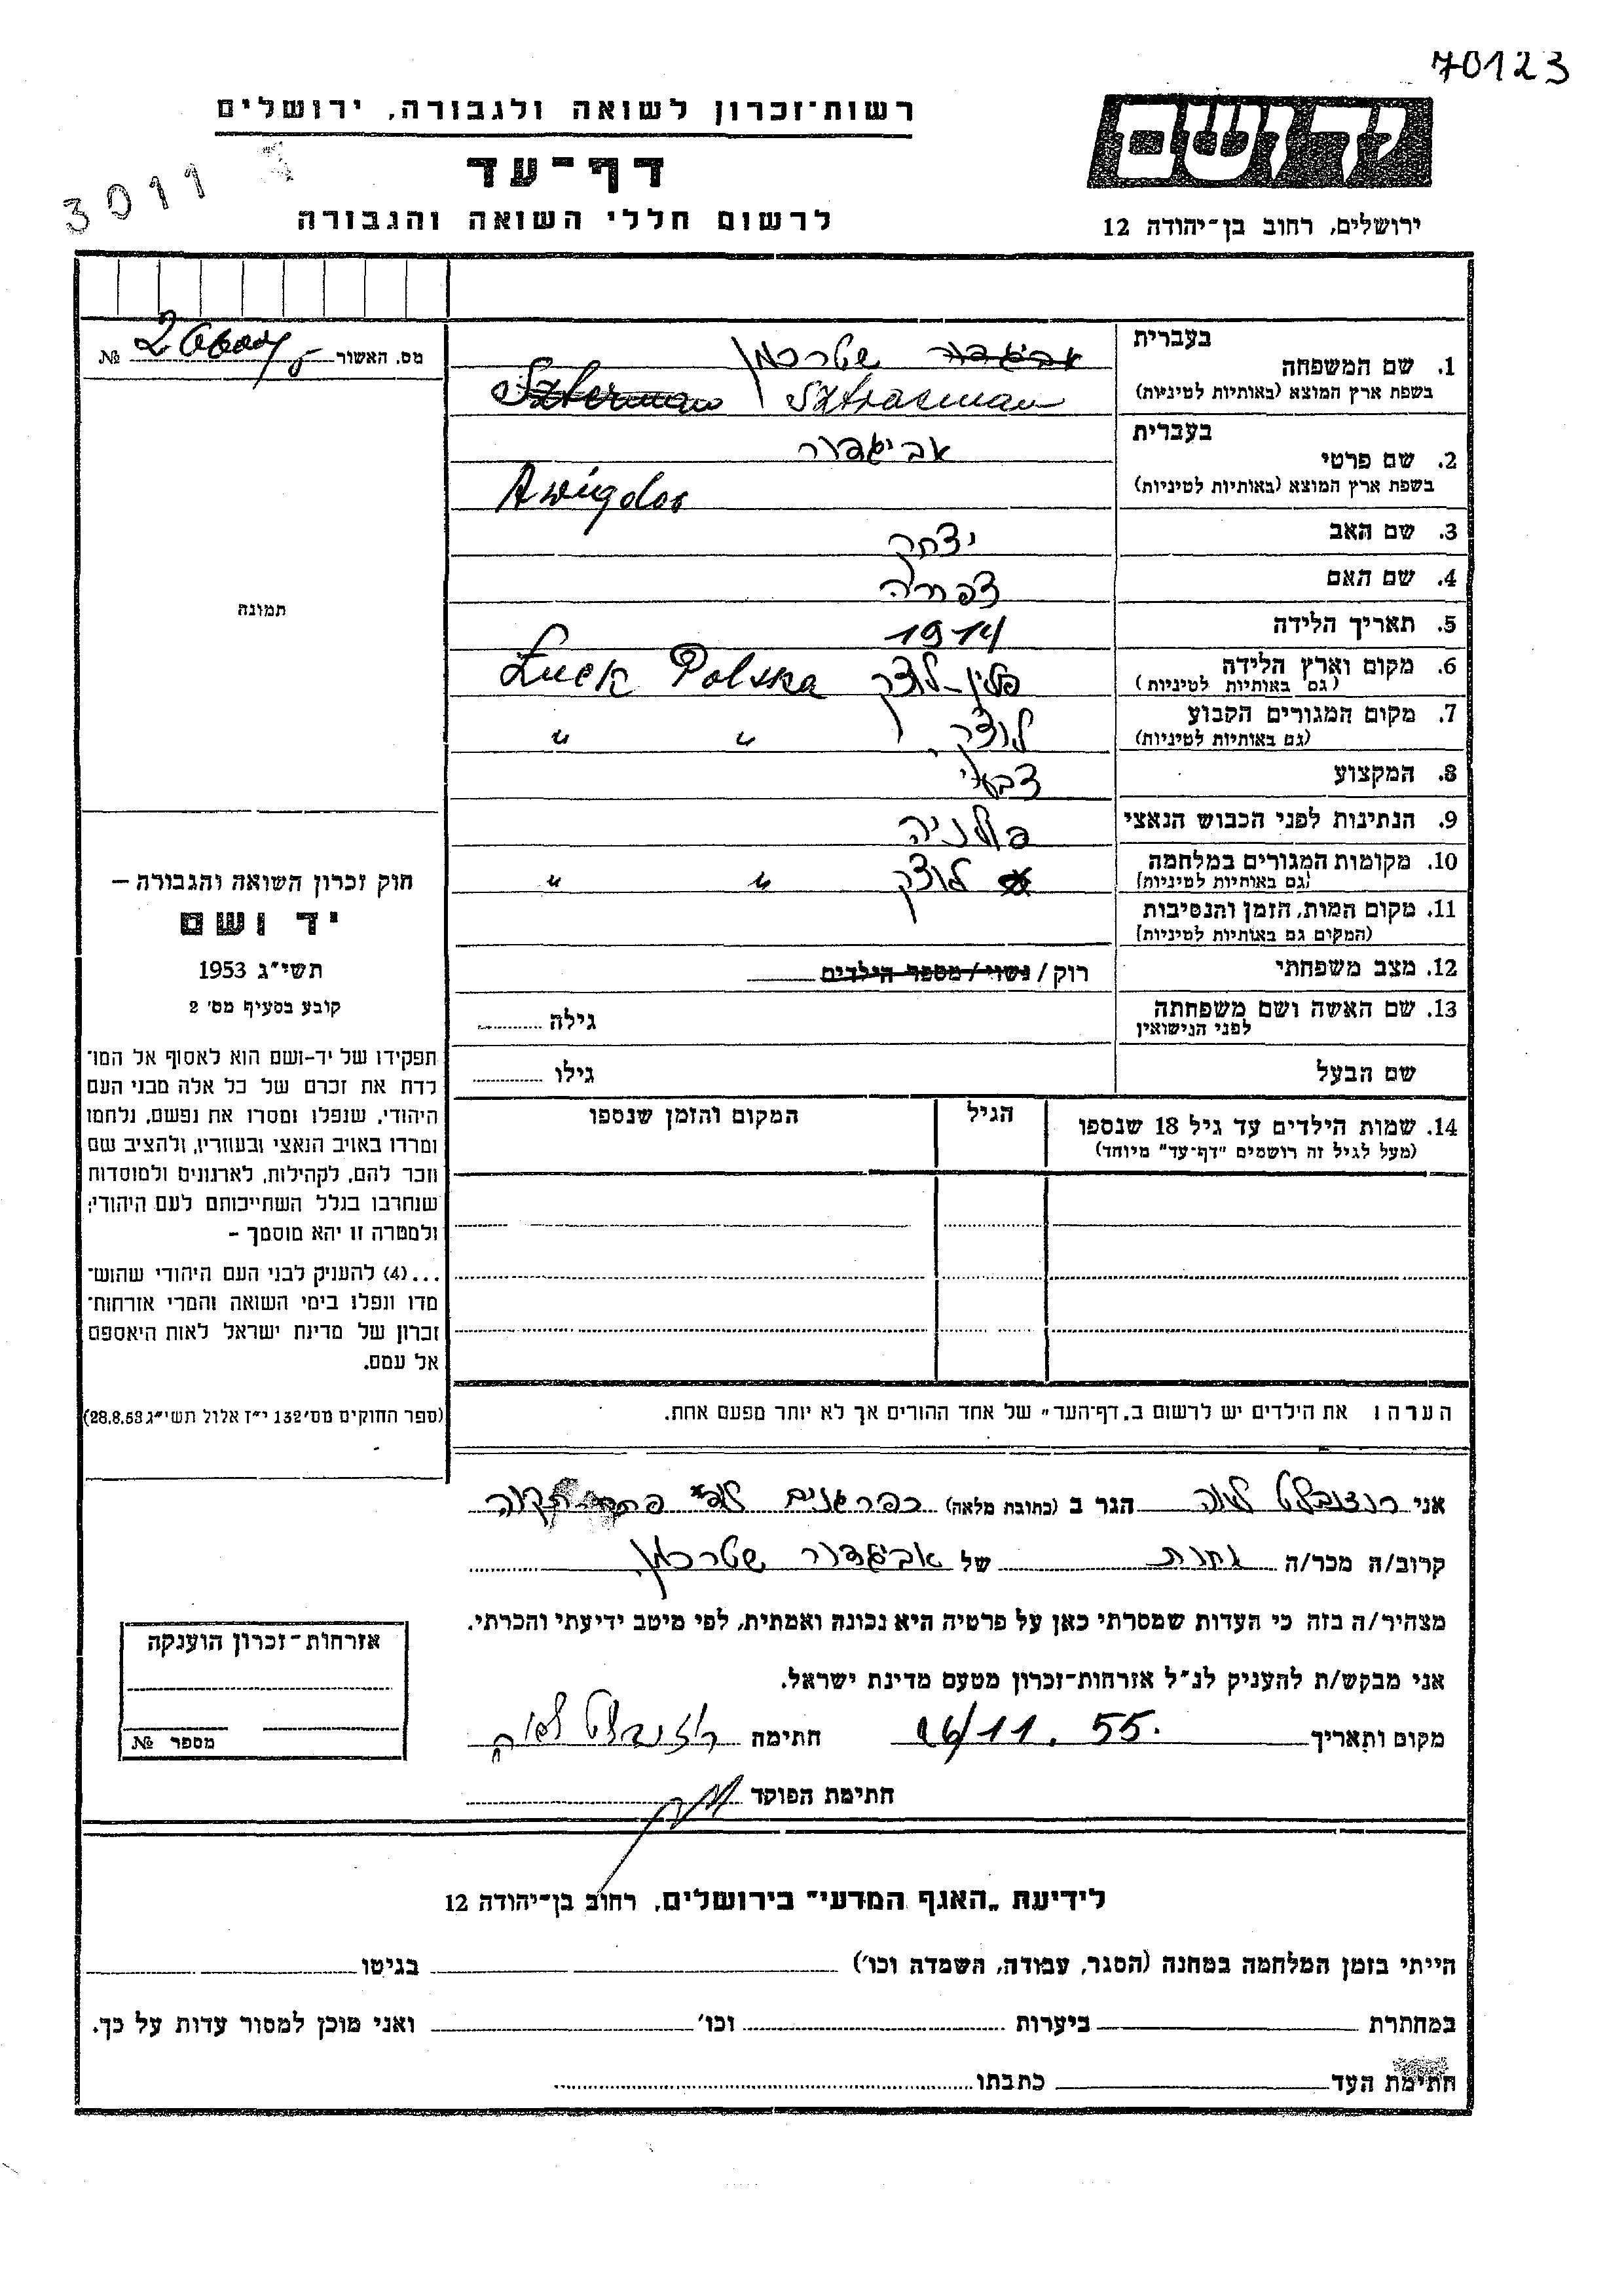 70123
רשות־זכרון לשואה ולגבורה, ירושלים
ידושם
דף־עד
3011
לרשום חללי השואה והגבורה
ירושלים, רחוב בן־יהודה 12
בעברית
1. שם המשפחה אביגדור שטרכמן
בשפת ארץ המוצא (באותיות לטיניות) Szterman Sztrasman
מס. האשור №
בעברית
2. שם פרטי אביגדור
בשפת ארץ המוצא (באותיות לטיניות) Awigdor
3. שם האב יצחק
4. שם האם
5. תאריך הלידה 1914
6. מקום וארץ הלידה פולין־לוצק Łuck Polska
(גם באותיות לטיניות)
7. מקום המגורים הקבוע לוצק " "
(גם באותיות לטיניות)
8. המקצוע צבעי
9. הנתינות לפני הכבוש הנאצי פולניה
10. מקומות המגורים במלחמה לוצק " "
(גם באותיות לטיניות)
11. מקום המות, הזמן והנסיבות
(המקום גם באותיות לטיניות)
12. מצב משפחתי רוק / נשוי / מספר הילדים
13. שם האשה ושם משפחתה גילה
לפני הנישואין
שם הבעל גילו
14. שמות הילדים עד גיל 18 שנספו הגיל המקום והזמן שנספו
(מעל לגיל זה רושמים "דף־עד" מיוחד)
תמונה
חוק זכרון השואה והגבורה –
יד ושם
תשי"ג 1953
קובע בסעיף מס' 2
תפקידו של יד-ושם הוא לאסוף אל המו־
לדת את זכרם של כל אלה מבני העם
היהודי, שנפלו ומסרו את נפשם, נלחמו
ומרדו באויב הנאצי ובעוזריו, ולהציב שם
וזכר להם, לקהילות, לארגונים ולמוסדות
שנחרבו בגלל השתייכותם לעם היהודי;
ולמטרה זו יהא מוסמך –
...(4) להעניק לבני העם היהודי שהוש־
מדו ונפלו בימי השואה והמרי אזרחות־
זכרון של מדינת ישראל לאות היאספם
אל עמם.
(ספר החוקים מס' 132 י"ז אלול תשי"ג 28.8.53)
הערה: את הילדים יש לרשום ב„דף־העד" של אחד ההורים אך לא יותר מפעם אחת.
אני לאה הגר ב (כתובת מלאה) כפר גנים פתח־תקוה
קרוב/ה מכר/ה של אביגדור שטרכמן
מצהיר/ה בזה כי העדות שמסרתי כאן על פרטיה היא נכונה ואמתית, לפי מיטב ידיעתי והכרתי.
אני מבקש/ת להעניק לנ"ל אזרחות־זכרון מטעם מדינת ישראל.
מקום ותאריך 26/11.55. חתימה
חתימת הפוקד
אזרחות־זכרון הוענקה
מספר №
לידיעת „האגף המדעי" בירושלים, רחוב בן־יהודה 12
הייתי בזמן המלחמה במחנה (הסגר, עבודה, השמדה וכו') בגיטו
במחתרת ביערות וכו' ואני מוכן למסור עדות על כך.
חתימת העד כתבתו